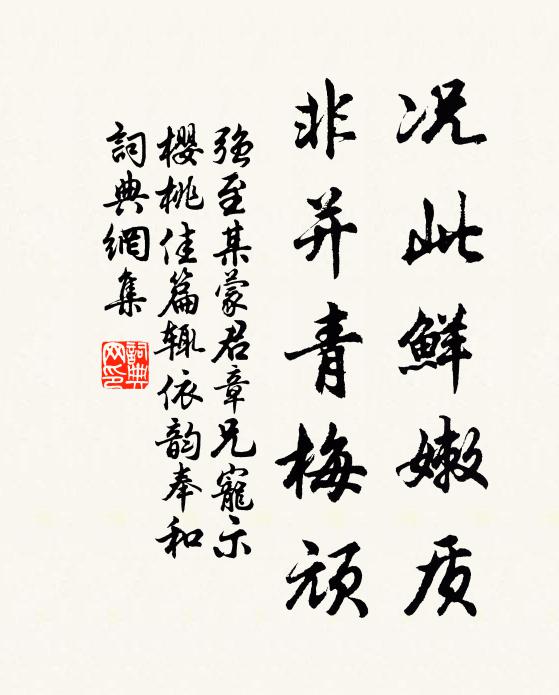 况此鲜嫩质
非并青梅顽
强至某蒙君章兄寵示
櫻桃佳篇辄依韵奉和
詞典網集
詞典网印